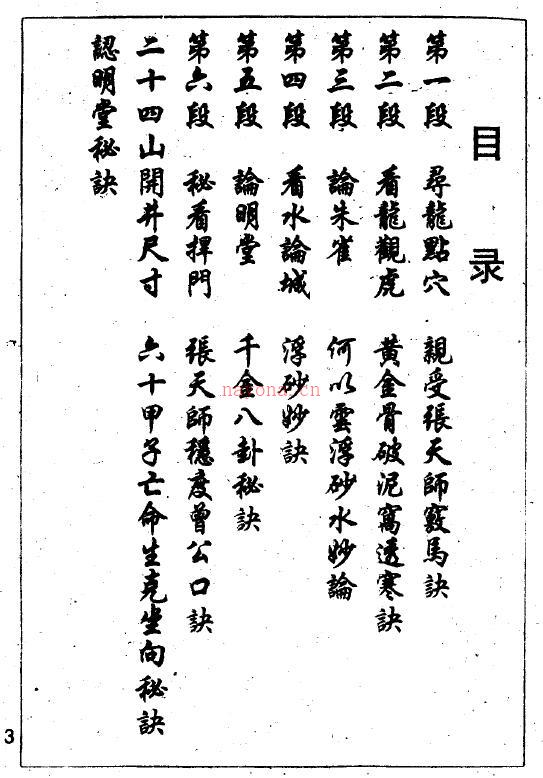 目录
第一段 尋龍點穴 親受張天師竅馬訣
第二段 看龍觀虎 黃金骨破泥窩透寒訣
第三段 論朱雀 何以雲浮砂水妙論
第四段 看水論城 浮砂妙訣
第五段 論明堂 千金八卦秘訣
第六段 秘看捍門 張天師穩度曾公口訣
二十四山開井尺寸 六十甲子亡命生克坐向秘訣
認明堂秘訣
3
nayona.cn